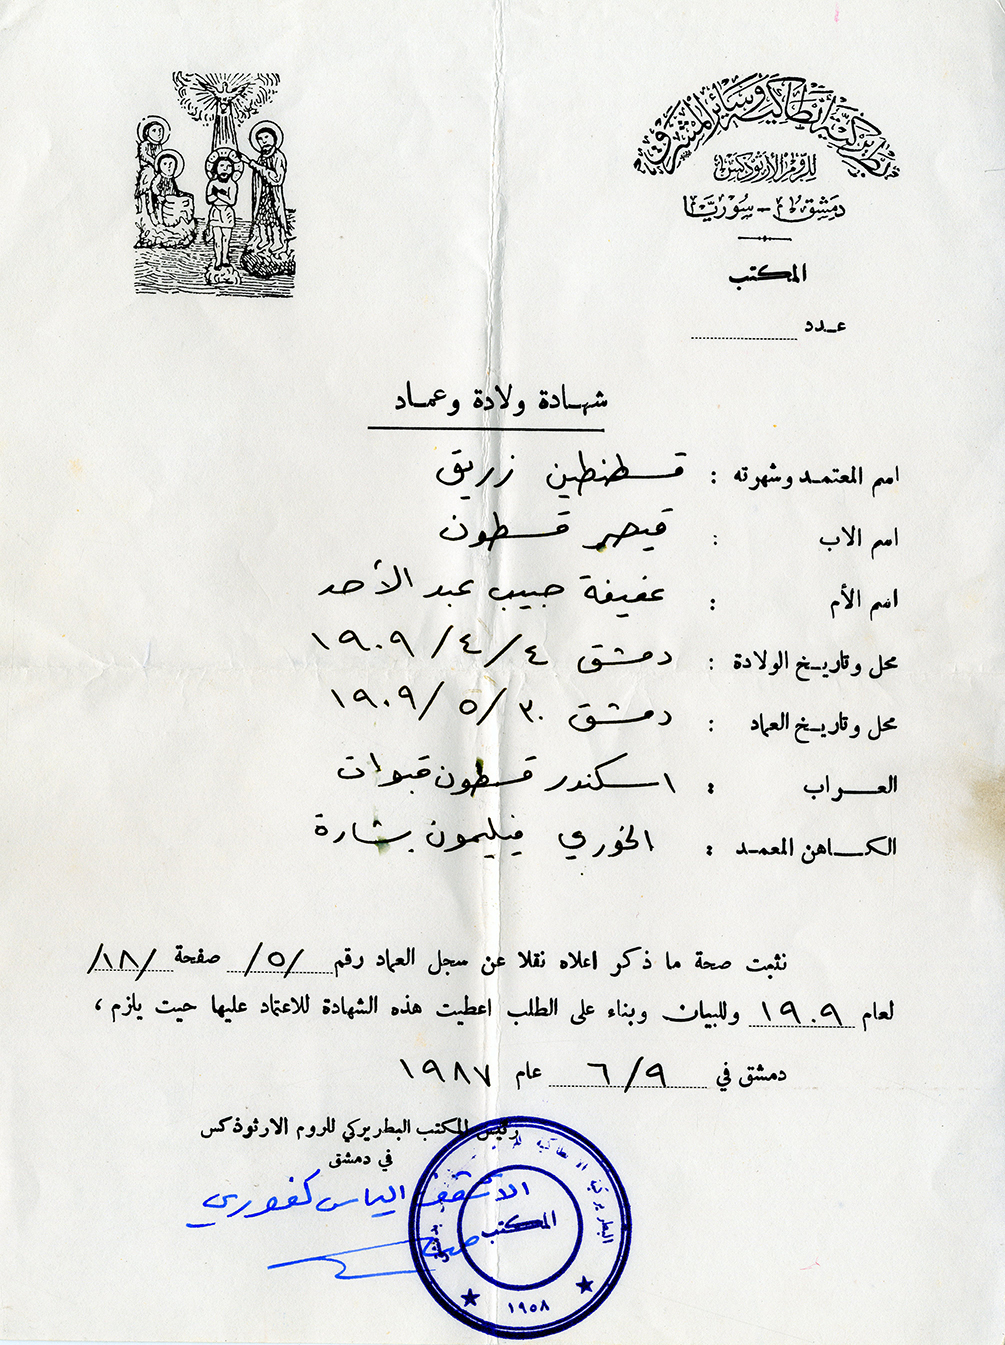 بطريركية أنطاكية وسائر المشرق
للروم الأرثوذكس
دمشق - سوريا
المكتب
عدد
شهادة ولادة وعماد
اسم المعتمد وشهرته : قسطنطين زريق
اسم الاب : قيصر قسطون
اسم الأم : عفيفة حبيب عبد الأحد
محل وتاريخ الولادة : دمشق ٤/ ٤/ ١٩٠٩
محل وتاريخ العماد : دمشق ٣٠/ ٥/ ١٩٠٩
العراب : اسكندر قسطون قبوات
الكاهن المعمد : الخوري فيليمون بشارة
نثبت صحة ما ذكر اعلاه نقلا عن سجل العماد رقم /٥/ صفحة /١٨/
لعام ١٩٠٩ وللبيان وبناء على الطلب اعطيت هذه الشهادة للاعتماد عليها حيث يلزم ،
دمشق في ٦/٩ عام ١٩٨٧
رئيس المكتب البطريركي للروم الارثوذكس
في دمشق
الاسقف الياس كفوري
المكتب
١٩٥٨